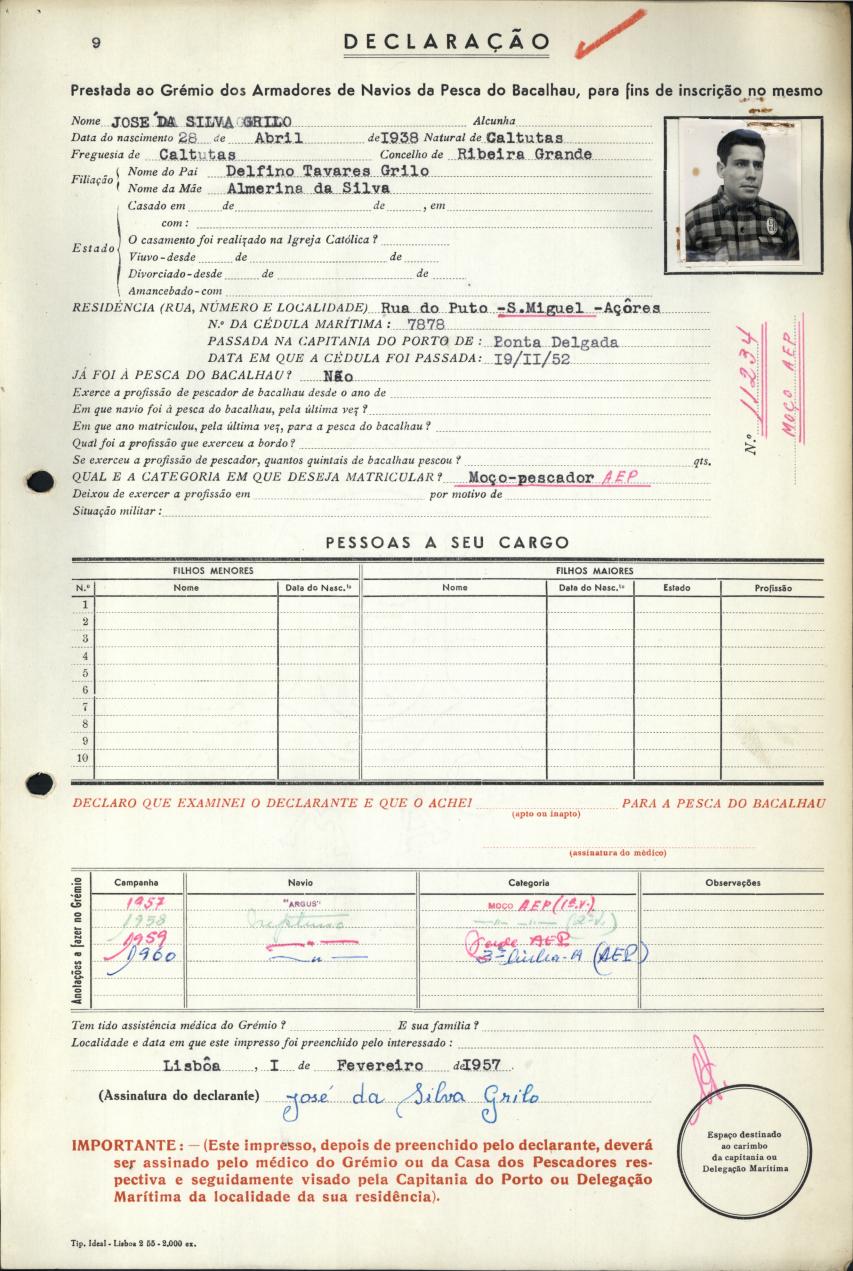 9
DECLARAÇÃO
Prestada ao Grémio dos Armadores de Navios da Pesca do Bacalhau, para fins de inscrição no mesmo
Nome JOSE DA SILVA GRILO Alcunha
Data do nascimento 28 de Abril de I938 Natural de Caltutas
Freguesia de Caltutas Concelho de Ribeira Grande
Filiação
Nome do Pai Delfino Tavares Grilo
Nome da Mãe Almerina da Silva
Estado
Casado em de de , em
com :
O casamento foi realizado na Igreja Católica ?
Viuvo-desde de de
Divorciado-desde de de
Amancebado-com
RESIDÊNCIA (RUA, NÚMERO E LOCALIDADE) Rua do Puto -S.Miguel -Açôres
N.º DA CÉDULA MARÍTIMA : 7878
PASSADA NA CAPITANIA DO PORTO DE : Ponta Delgada
DATA EM QUE A CÉDULA FOI PASSADA: I9/II/52
JÁ FOI À PESCA DO BACALHAU ? Não
Exerce a profissão de pescador de bacalhau desde o ano de
Em que navio foi à pesca do bacalhau, pela última vez ?
Em que ano matriculou, pela última vez, para a pesca do bacalhau ?
Qual foi a profissão que exerceu a bordo ?
Se exerceu a profissão de pescador, quantos quintais de bacalhau pescou ? qts.
QUAL E A CATEGORIA EM QUE DESEJA MATRICULAR ? Moço-pescador AEP
Deixou de exercer a profissão em por motivo de
Situação militar :
N.º 11234
MOÇO AEP
PESSOAS A SEU CARGO
FILHOS MENORES FILHOS MAIORES
N.º Nome Data do Nasc.to Nome Data do Nasc.to Estado Profissão
1
2
3
4
5
6
7
8
9
10
DECLARO QUE EXAMINEI O DECLARANTE E QUE O ACHEI PARA A PESCA DO BACALHAU
(apto ou inapto)
(assinatura do médico)
Anotações a fazer no Grémio
Campanha Navio Categoria Observações
1957 "ARGUS" MOÇO AEP (1ª V.)
1958 Neptuno — " — " — (2ª V.)
1959 — " — Verde AEP
1960 — " — 3ª Linha-A (AEP)
Tem tido assistência médica do Grémio ? E sua família ?
Localidade e data em que este impresso foi preenchido pelo interessado :
Lisbôa , I de Fevereiro de I957 .
(Assinatura do declarante) José da Silva Grilo
IMPORTANTE : — (Este impresso, depois de preenchido pelo declarante, deverá
ser assinado pelo médico do Grémio ou da Casa dos Pescadores res-
pectiva e seguidamente visado pela Capitania do Porto ou Delegação
Marítima da localidade da sua residência).
Espaço destinado
ao carimbo
da capitania ou
Delegação Marítima
Tip. Ideal - Lisboa 2 55 - 2,000 ex.